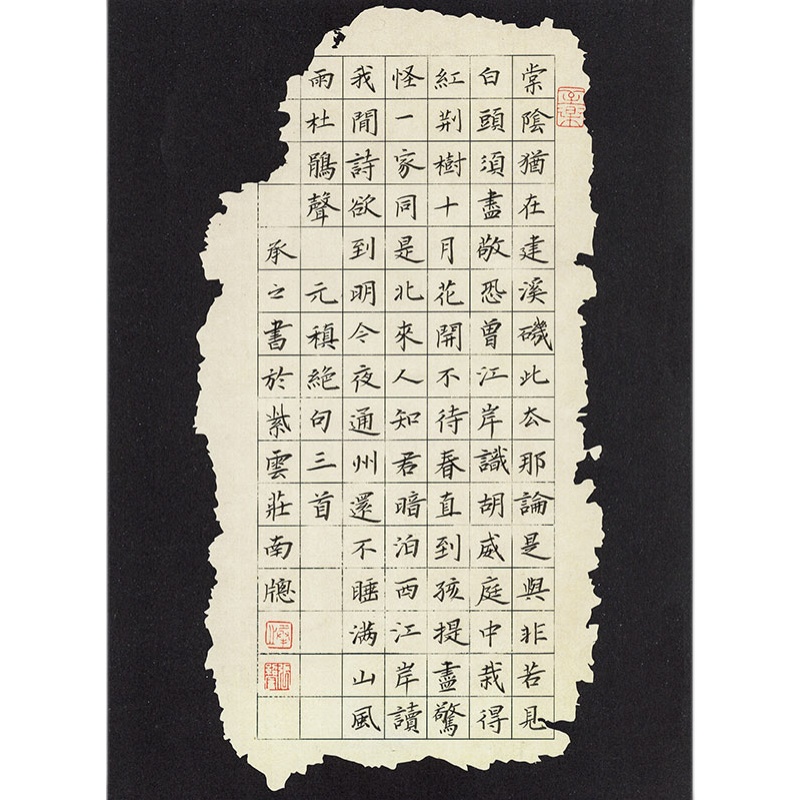 棠陰猶在建溪磯此去那論是與非若見
白頭須盡敬恐曾江岸識胡威庭中栽得
紅荆樹十月花開不待春直到孩提盡驚
怪一家同是北來人知君暗泊西江岸讀
我閒詩欲到明今夜通州還不睡滿山風
雨杜鵑聲 元稹絶句三首
承之書於紫雲莊南牕